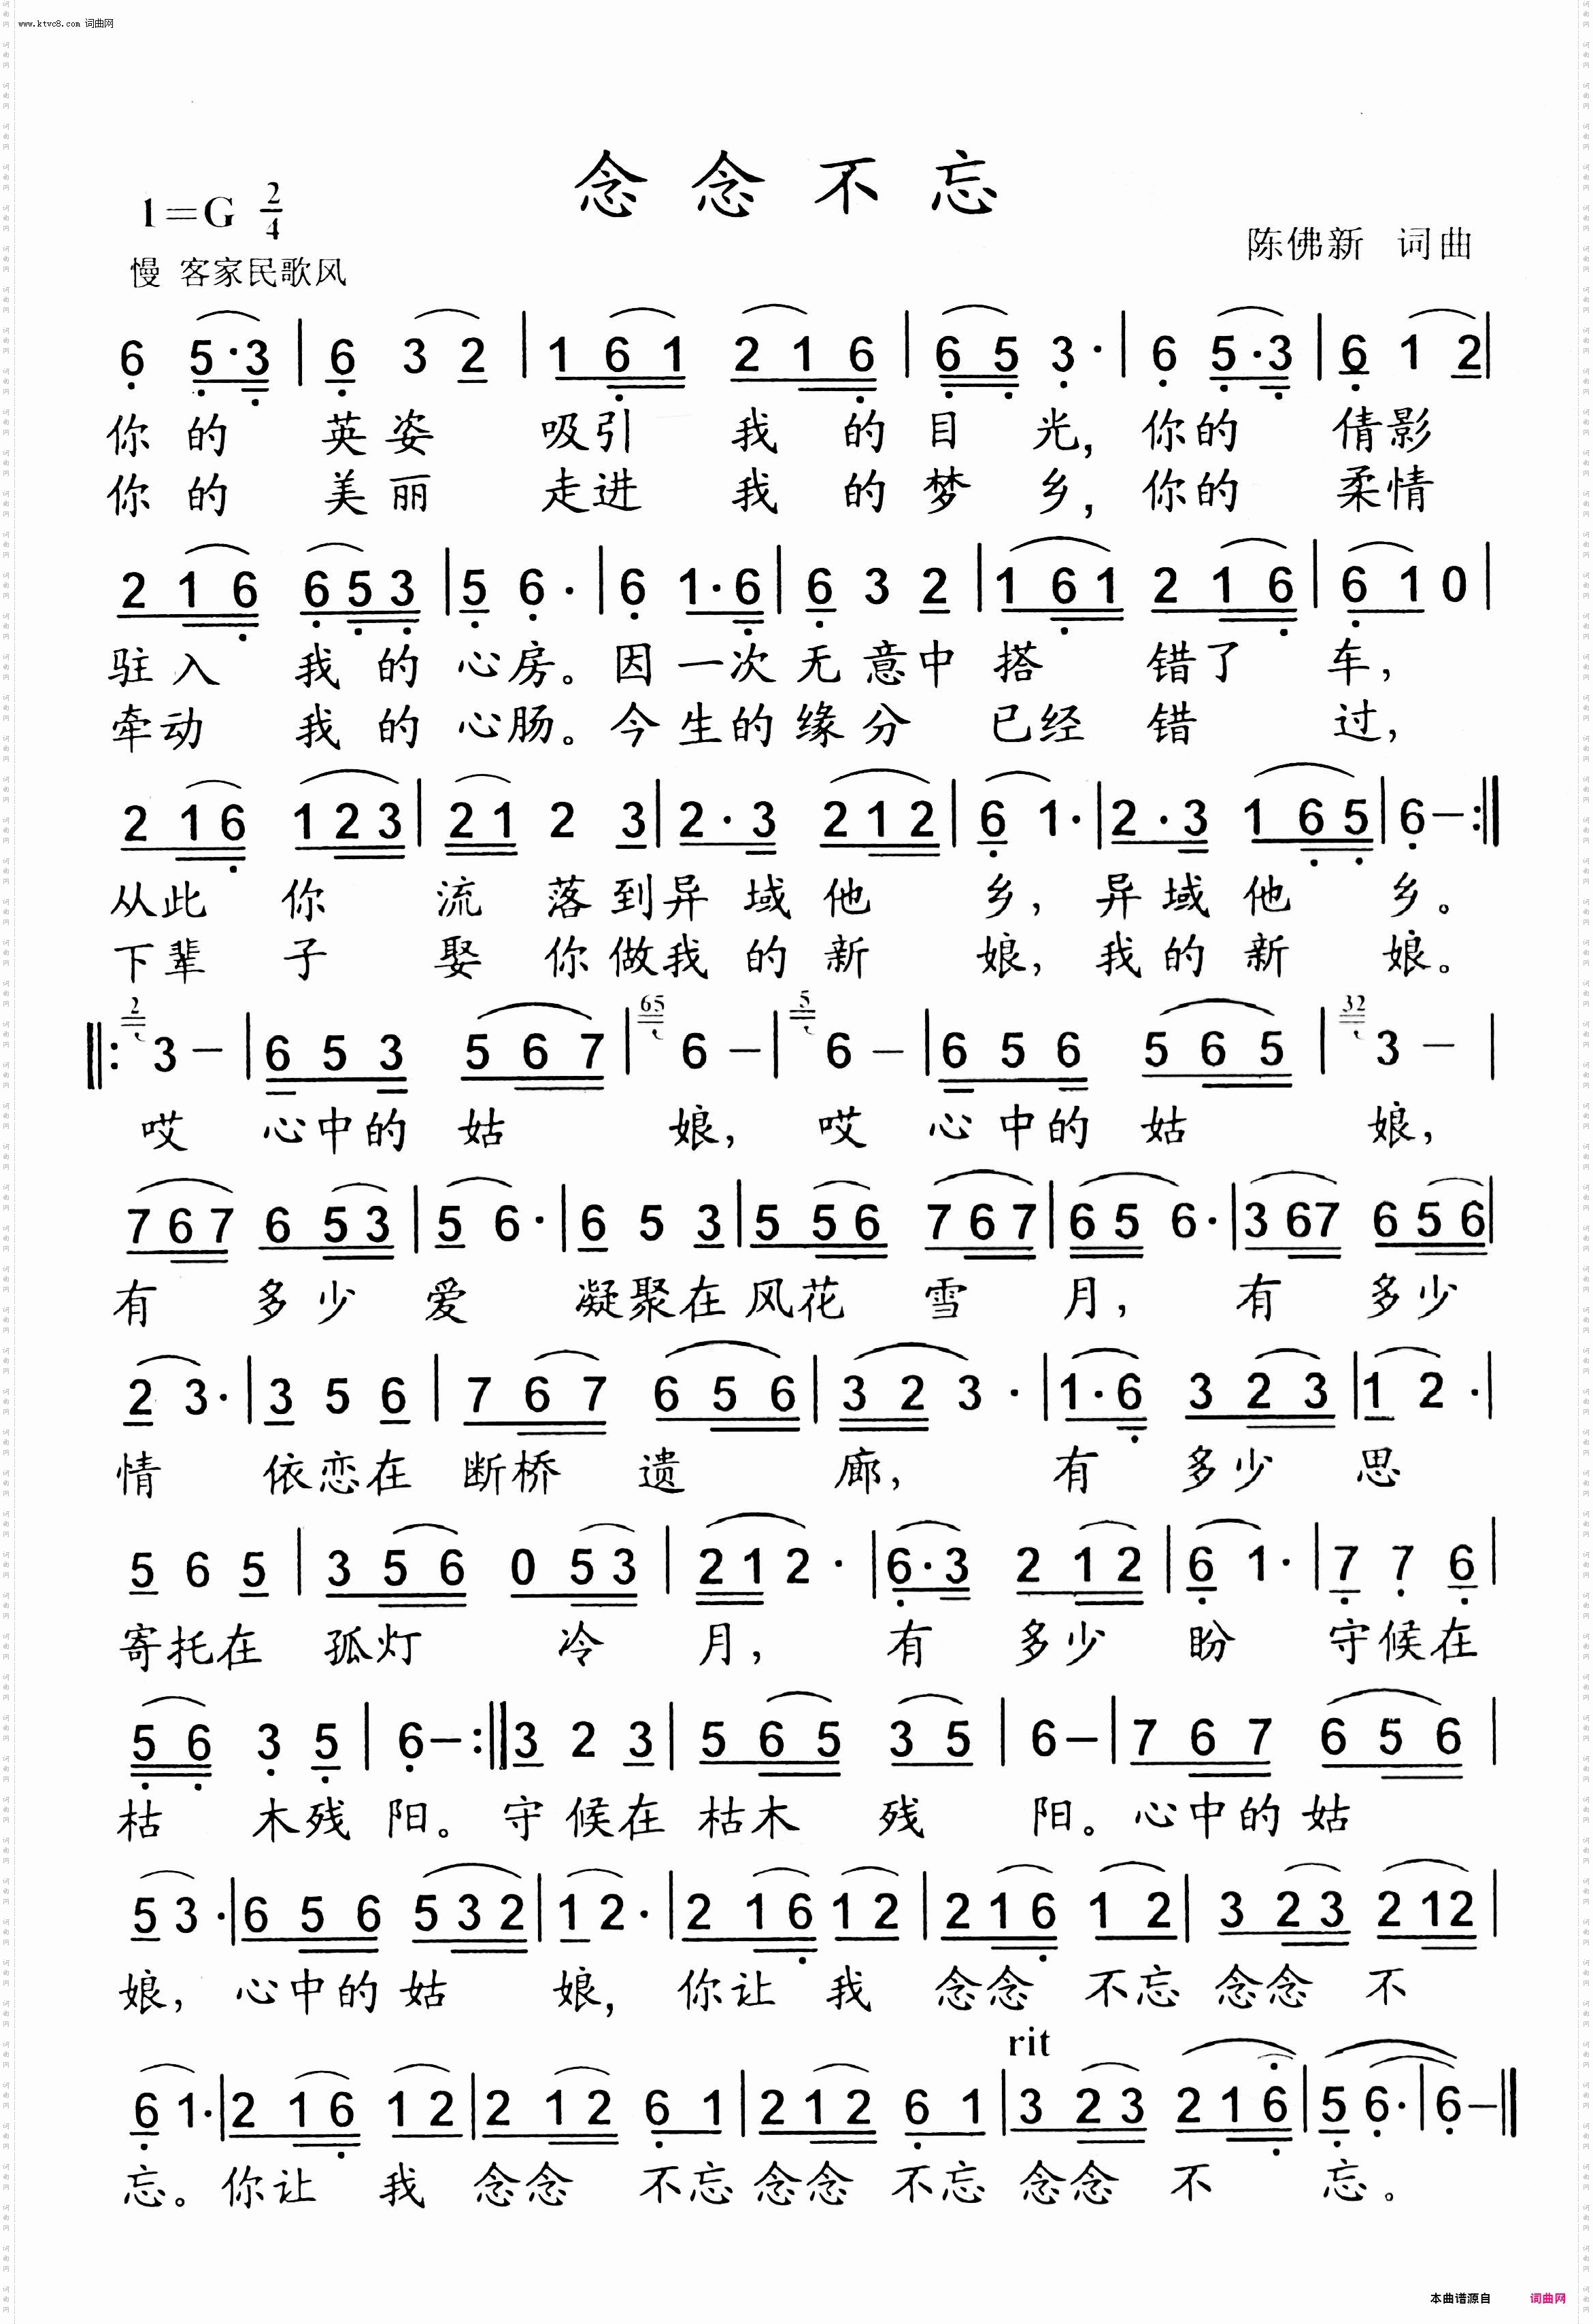 www.ktvc8.com 词曲网
念念不忘
1=G 2/4
陈佛新 词曲
慢 客家民歌风
6 5·3 | 6 3 2 | 1 6 1 2 1 6 | 6 5 3· | 6 5·3 | 6 1 2 |
你的 英姿 吸引 我 的目 光，你的 倩影
你的 美丽 走进 我 的梦 乡，你的 柔情
2 1 6 6 5 3 | 5 6· | 6 1·6 | 6 3 2 | 1 6 1 2 1 6 | 6 1 0 |
驻入 我的心房。因一次无意中搭 错了 车，
牵动 我的心肠。今生的缘分 已经 错 过，
2 1 6 1 2 3 | 2 1 2 3 | 2·3 2 1 2 | 6 1· | 2·3 1 6 5 | 6 – :||
从此 你 流 落到异域他 乡，异域他 乡。
下辈 子 娶 你做我的新 娘，我的新 娘。
||: 2 3 – | 6 5 3 5 6 7 | 65 6 – | 5 6 – | 6 5 6 5 6 5 | 32 3 – |
哎 心中的 姑 娘，哎 心中的 姑 娘，
7 6 7 6 5 3 | 5 6· | 6 5 3 | 5 5 6 7 6 7 | 6 5 6· | 3 6 7 6 5 6 |
有 多少 爱 凝聚在风花 雪 月，有 多少
2 3· | 3 5 6 | 7 6 7 6 5 6 | 3 2 3· | 1·6 3 2 3 | 1 2· |
情 依恋在 断桥 遗 廊，有 多少 思
5 6 5 | 3 5 6 0 5 3 | 2 1 2· | 6·3 2 1 2 | 6 1· | 7 7 6 |
寄托在 孤灯 冷 月，有 多少 盼 守候在
5 6 3 5 | 6 – :|| 3 2 3 | 5 6 5 3 5 | 6 – | 7 6 7 6 5 6 |
枯 木残 阳。守候在枯木 残 阳。心中的姑
5 3· | 6 5 6 5 3 2 | 1 2· | 2 1 6 1 2 | 2 1 6 1 2 | 3 2 3 2 1 2 |
娘，心中的姑 娘，你让 我 念念 不忘 念念 不
rit
6 1· | 2 1 6 1 2 | 2 1 2 6 1 | 2 1 2 6 1 | 3 2 3 2 1 6 | 5 6· | 6 – ||
忘。你让 我 念念 不忘 念念 不忘 念念 不 忘。
本曲谱源自 词曲网